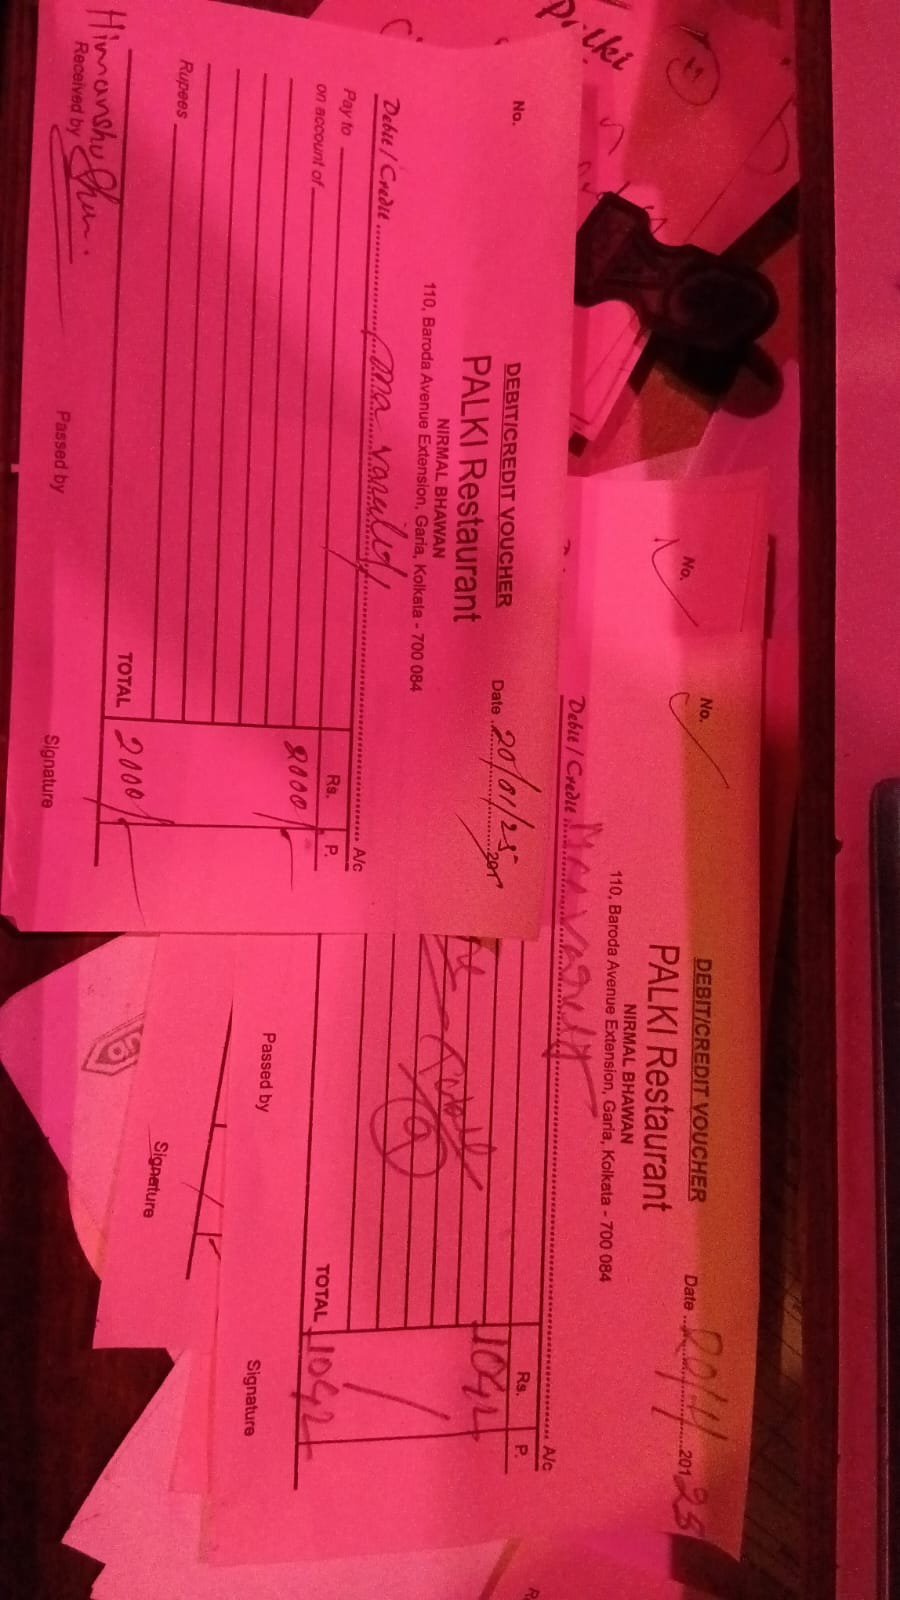 Palki
No.
DEBIT/CREDIT VOUCHER
PALKI Restaurant
NIRMAL BHAWAN
110, Baroda Avenue Extension, Garia, Kolkata - 700 084
Date 20/01/25 201
Debit / Credit Ma variety A/c
Pay to
on account of
Rs. P.
2000/-
Rupees
TOTAL 2000/-
Himanshu
Received by
Passed by
Signature
No.
No.
DEBIT/CREDIT VOUCHER
PALKI Restaurant
NIRMAL BHAWAN
110, Baroda Avenue Extension, Garia, Kolkata - 700 084
Date 20/1/ 201 25
Debit / Credit Maa Variety A/c
Rs. P.
1042
TOTAL 1042
Passed by
Signature
Signature